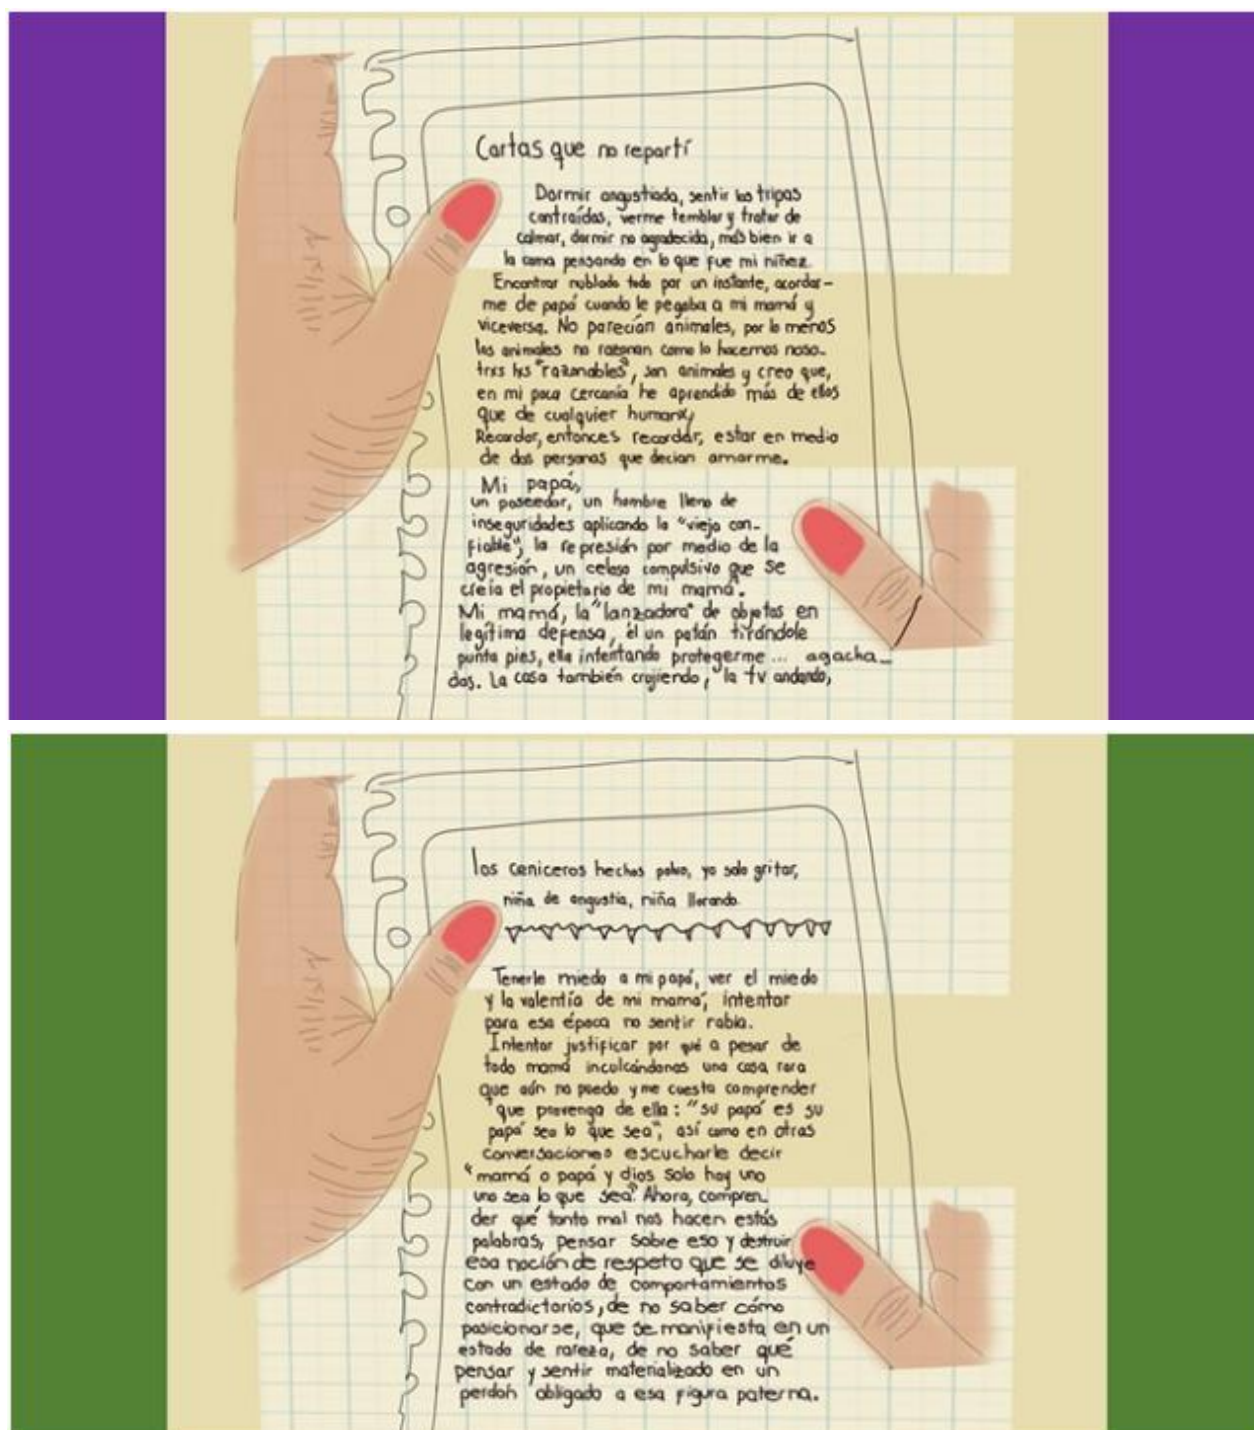 Cartas que no repartí
Dormir angustiada, sentir las tripas
contraídas, verme temblar y tratar de
calmar, dormir no agradecida, más bien ir a
la cama pensando en lo que fue mi niñez.
Encontrar nublado todo por un instante, acordar-
me de papá cuando le pegaba a mi mamá y
viceversa. No parecían animales, por lo menos
los animales no razonan como lo hacemos noso-
trxs lxs "razonables", son animales y creo que,
en mi poca cercanía he aprendido más de ellos
que de cualquier humanx,
Recordar, entonces recordar, estar en medio
de dos personas que decían amarme.
Mi papá,
un poseedor, un hombre lleno de
inseguridades aplicando la "vieja con-
fiable", la represión por medio de la
agresión, un celoso compulsivo que se
creía el propietario de mi mamá.
Mi mamá, la "lanzadora" de objetos en
legítima defensa, él un patán tirándole
punta pies, ella intentando protegerme ... agacha_
das. La casa también crujiendo, la tv andando,
los ceniceros hechos polvo, yo solo gritar,
niña de angustia, niña llorando.
Tenerle miedo a mi papá, ver el miedo
y la valentía de mi mamá, intentar
para esa época no sentir rabia.
Intentar justificar por qué a pesar de
todo mamá inculcándonos una cosa rara
que aún no puedo y me cuesta comprender
que provenga de ella: "su papá es su
papá sea lo que sea", así como en otras
conversaciones escucharle decir
"mamá o papá y dios solo hay uno
uno sea lo que sea". Ahora, compren_
der qué tanto mal nos hacen estás
palabras, pensar sobre eso y destruir
esa noción de respeto que se diluye
con un estado de comportamientos
contradictorios, de no saber cómo
posicionarse, que se manifiesta en un
estado de rareza, de no saber qué
pensar y sentir materializado en un
perdón obligado a esa figura paterna.